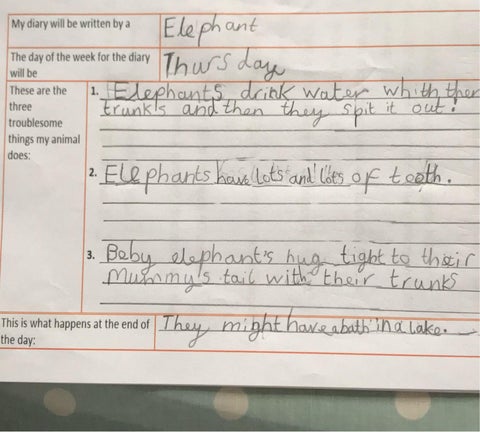 My diary will be written by a
Elephant
The day of the week for the diary
will be
Thursday
These are the
three
troublesome
things my animal
does:
1. Elephants drink water whith ther
trunk's and then they spit it out!
2. Elephants have lots and lots of teeth.
3. Baby elephant's hug tight to their
Mummy's tail with their trunks
This is what happens at the end of
the day:
They might have a bath in a lake.